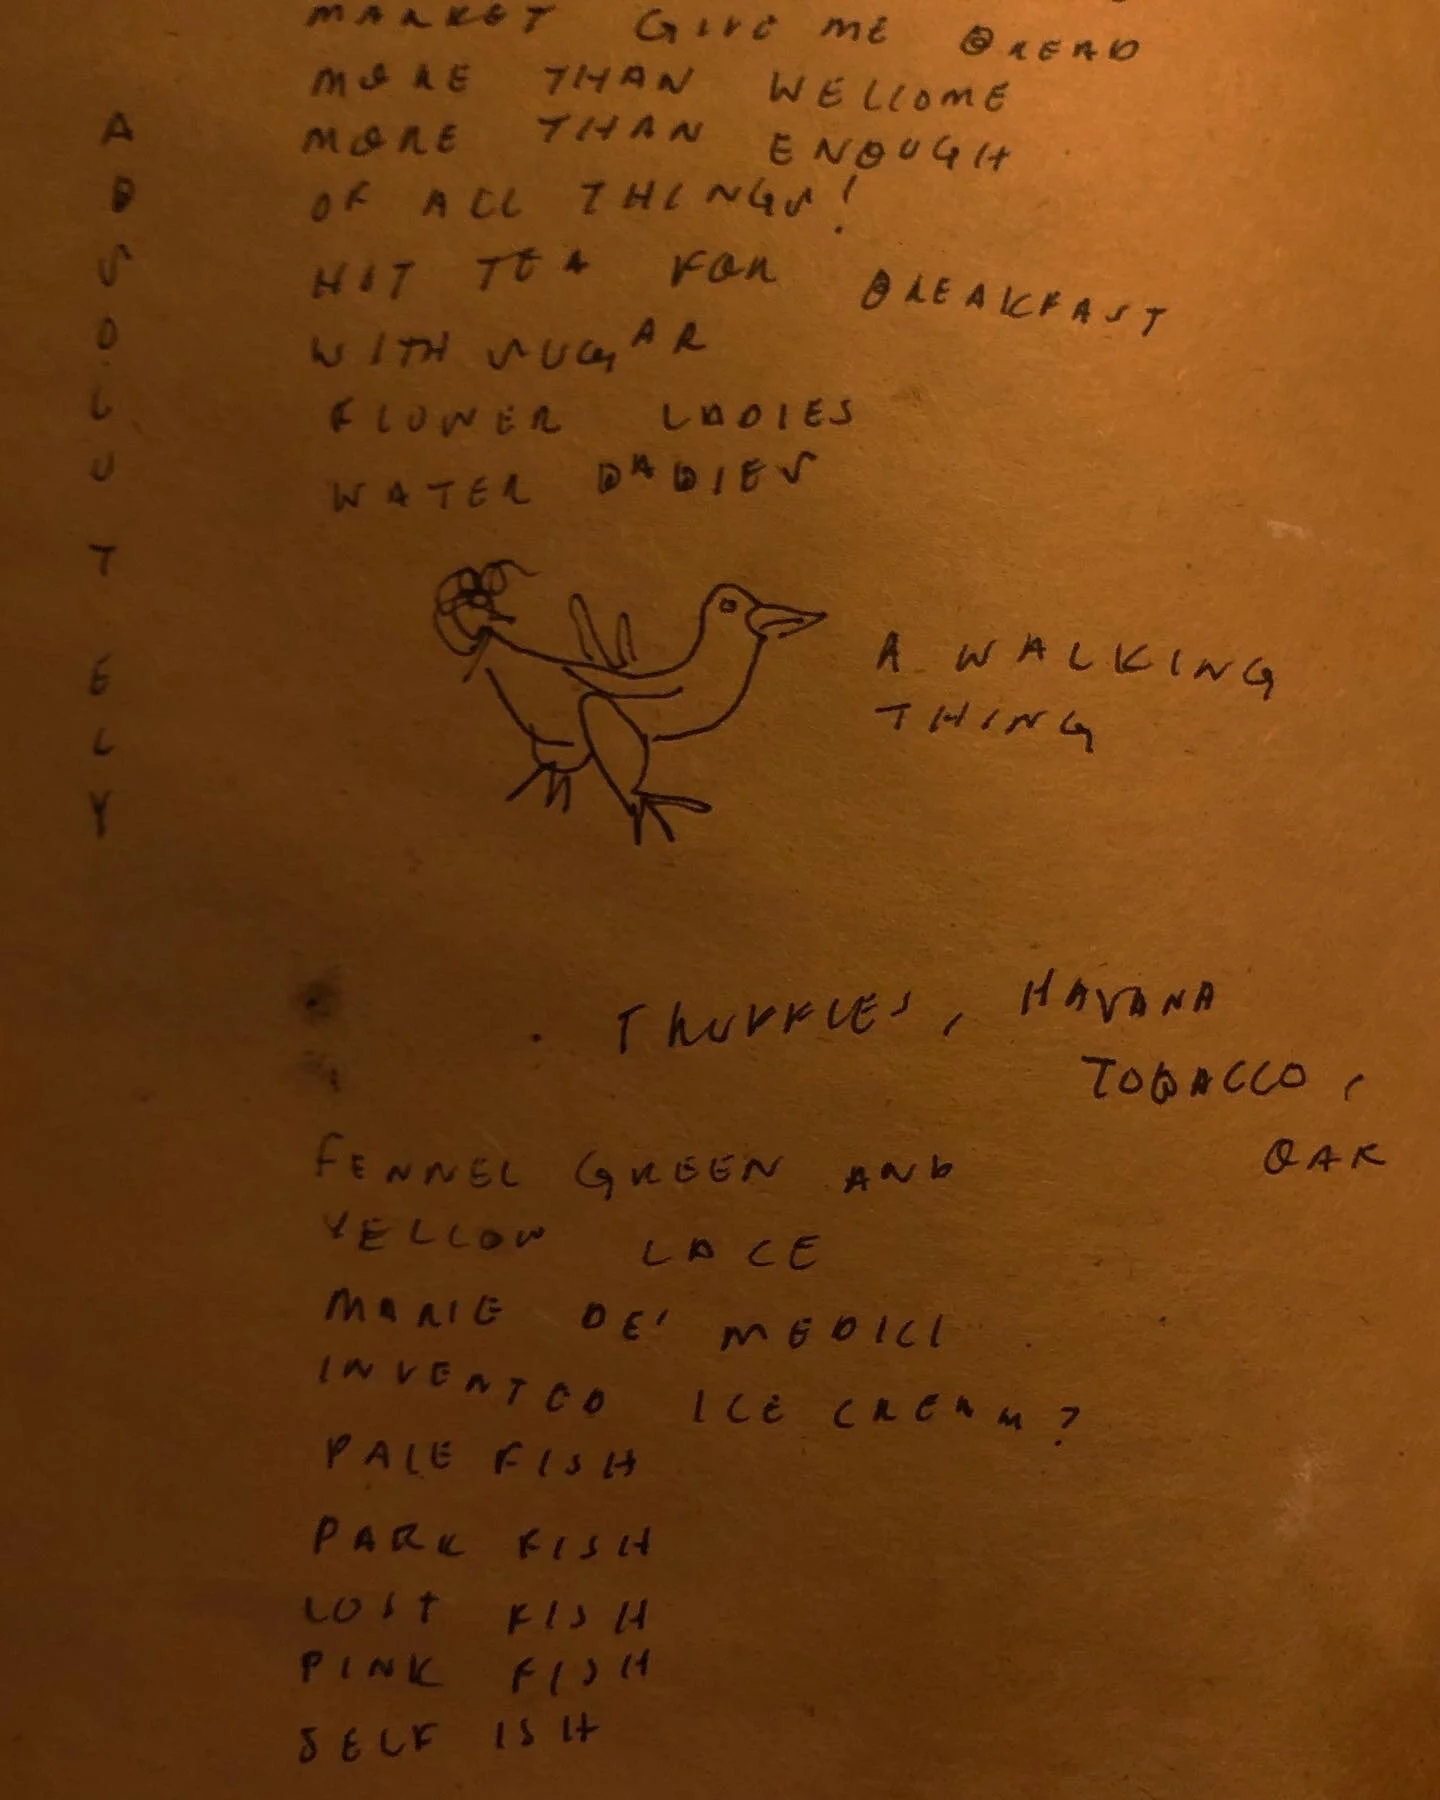 MARKET GIVE ME BREAD
MORE THAN WELLOME
MORE THAN ENOUGH
OF ALL THINGS!
HOT TEA FOR BREAKFAST
WITH SUGAR
FLOWER LADIES
WATER BABIES
ABSOLUTELY
A WALKING
THING
TRUFFLES, HAVANA
TOBACCO,
OAK
FENNEL GREEN AND
YELLOW LACE
MARIE DE' MEDICI
INVENTED ICE CREAM?
PALE FISH
PARK FISH
LOST FISH
PINK FISH
SELF ISH